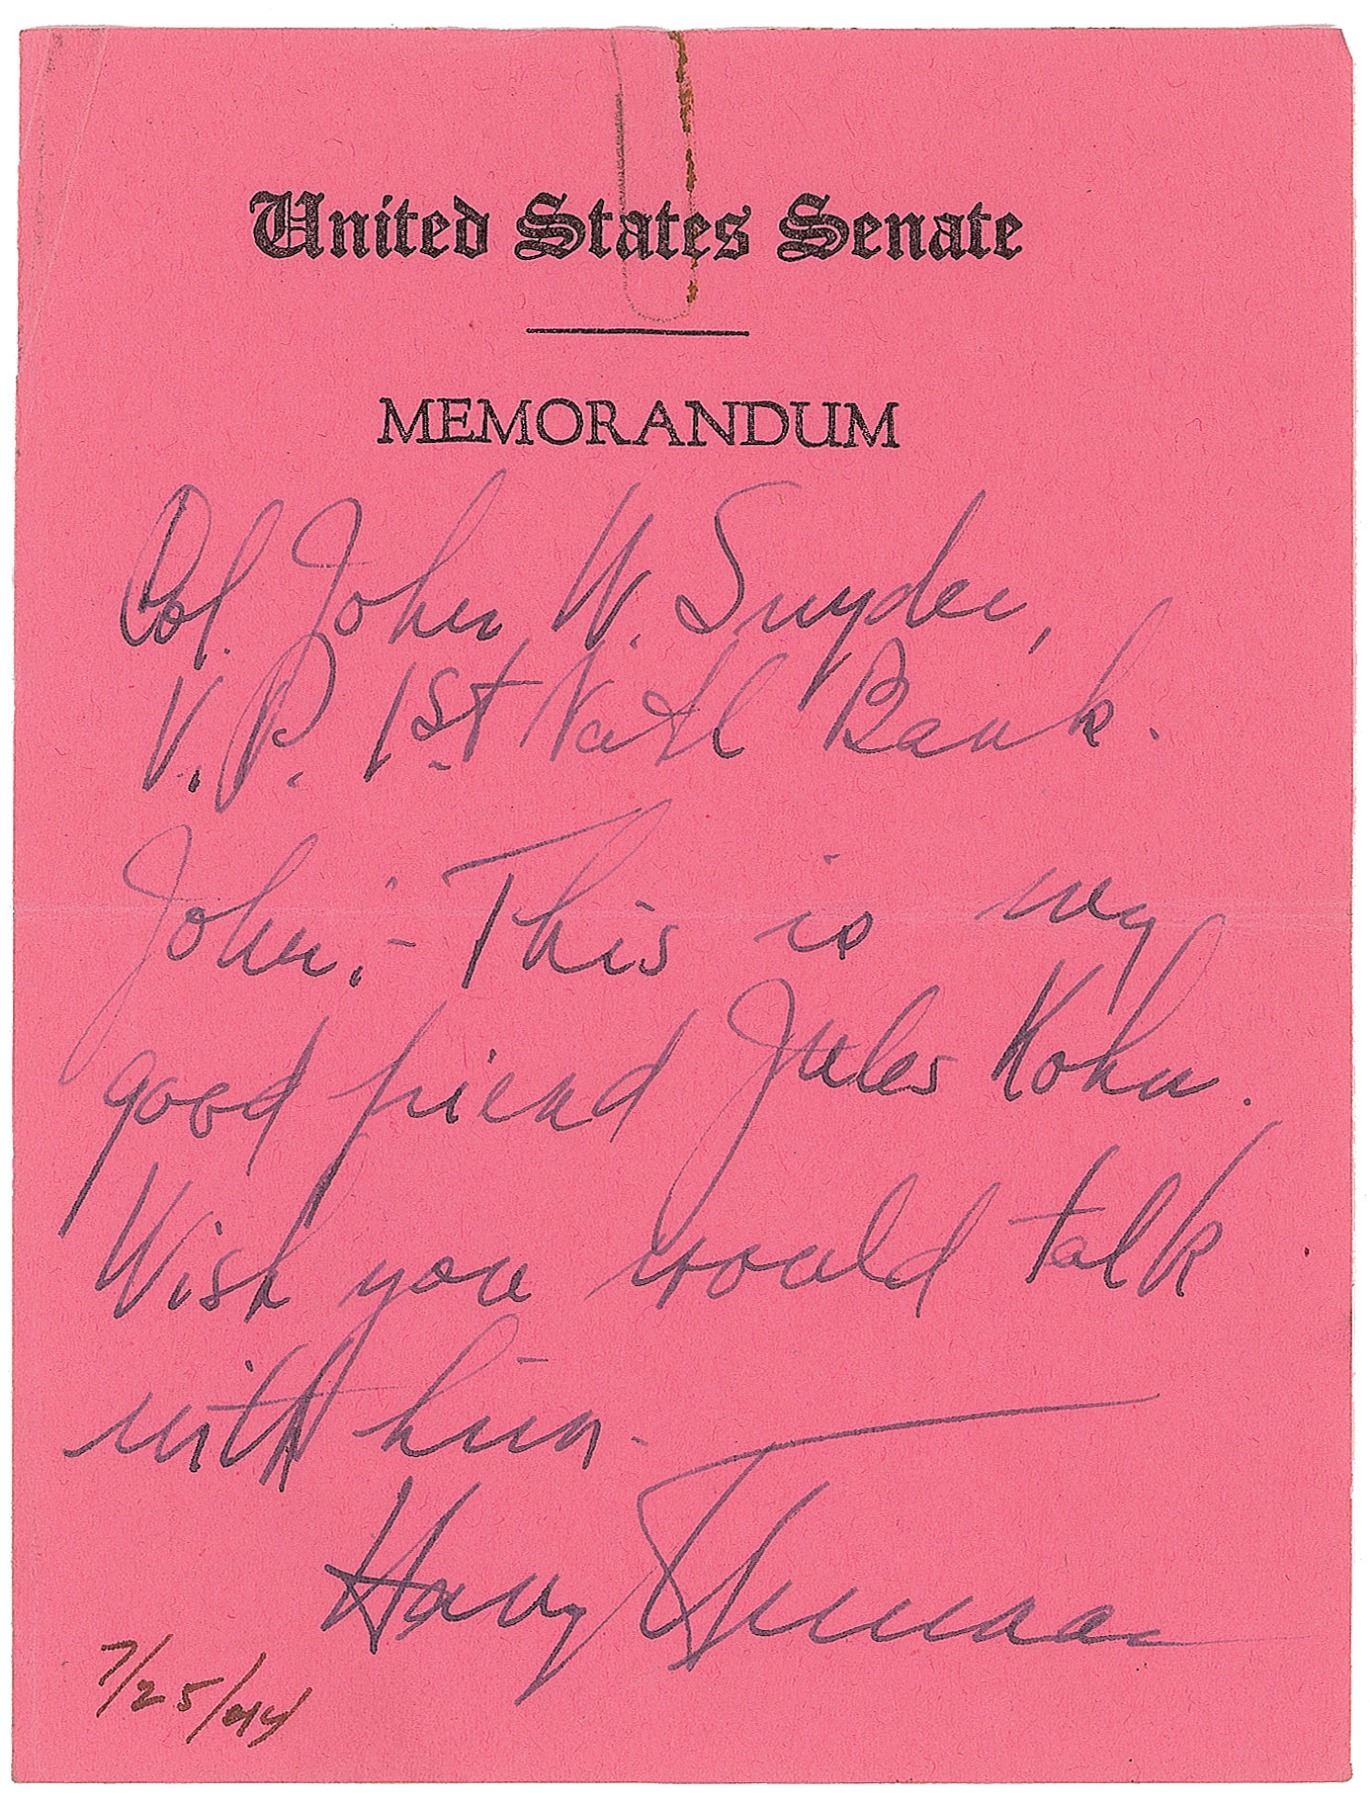 United States Senate
MEMORANDUM
Col. John W. Snyder,
V.P. 1st Natl Bank.
John:- This is my
good friend Jules Kohn.
Wish you would talk
with him.
Harry Truman
7/25/44